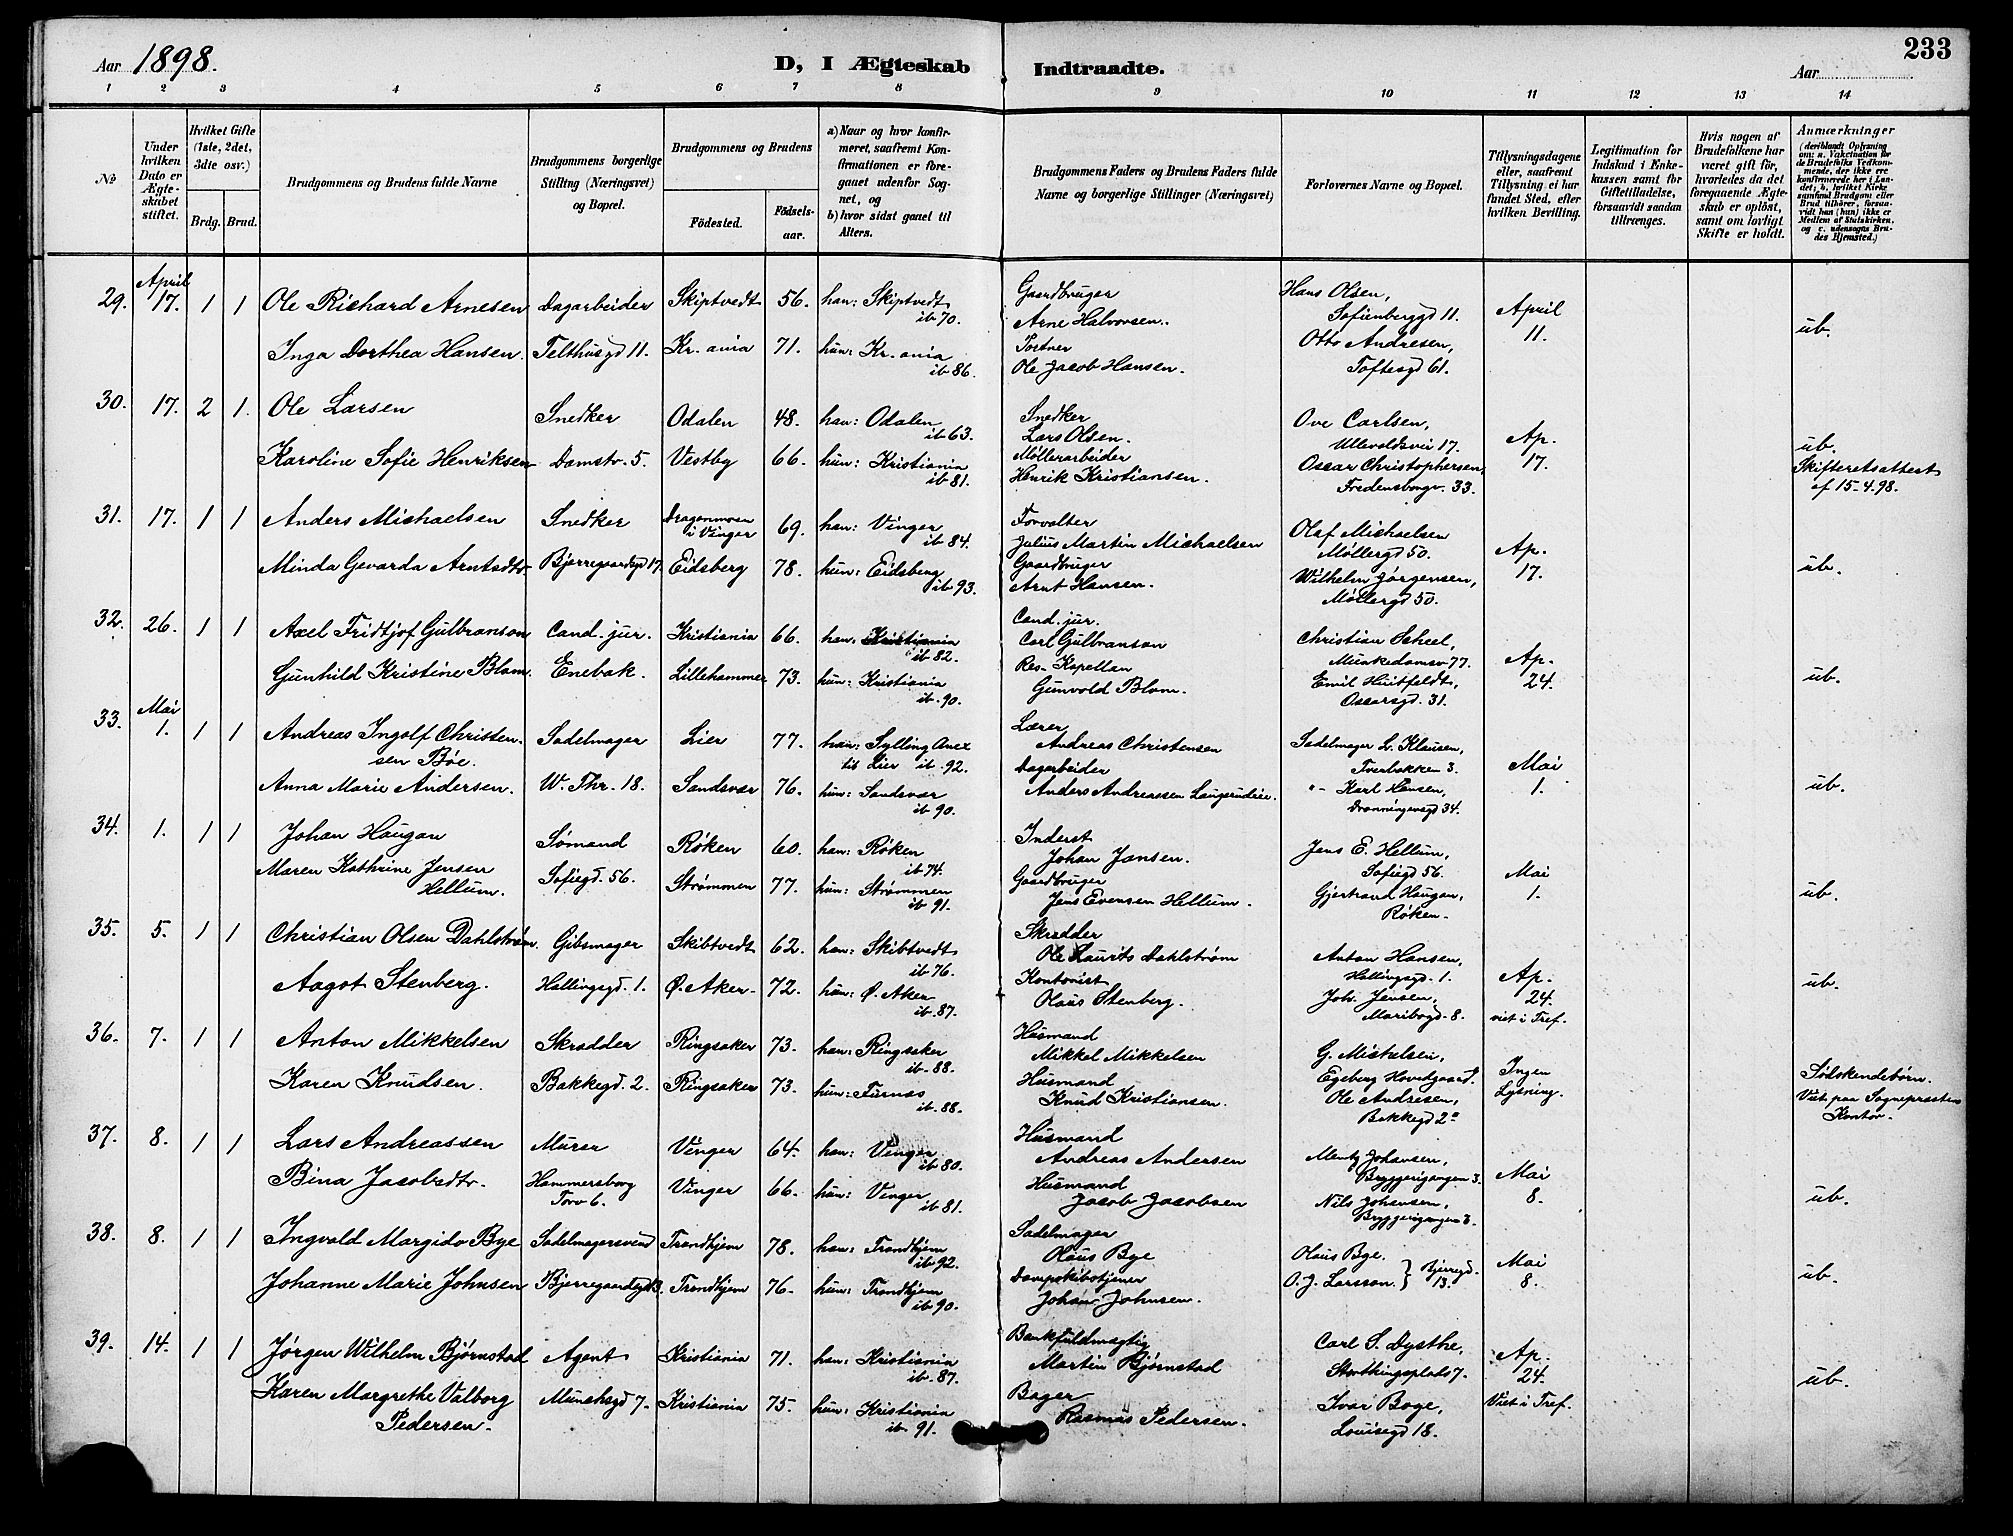 Aar 1898.
D, I Ægteskab Indtraadte.
Aar
233
1 2 3 4 5 6 7 8 9 10 11 12 13 14
№
Under hvilken Dato er Ægteskabet stiftet.
Hvilket Gifte (1ste, 2det, 3die osv.)
Brdg. Brud.
Brudgommens og Brudens fulde Navne
Brudgommens borgerlige Stilling (Næringsvei) og Bopæl.
Brudgommens og Brudens
Fødested. Fødselsaar.
a) Naar og hvor konfirmeret, saafremt Konfirmationen er foregaaet udenfor Sognet, og
b) hvor sidst gaaet til Alters.
Brudgommens Faders og Brudens Faders fulde Navne og borgerlige Stillinger (Næringsvei)
Forlovernes Navne og Bopæl.
Tillysningsdagene eller, saafremt Tillysning ei har fundet Sted, efter hvilken Bevilling.
Legitimation for Indskud i Enkekassen samt for Giftetilladelse, forsaavidt saadan tiltrænges.
Hvis nogen af Brudefolkene har været gift før, hvorledes da det foregaaende Ægteskab er opløst, samt om lovligt Skifte er holdt.
Anmærkninger
(deriblandt Oplysning om: a. Vakcination for de Brudefolks Vedkommende, der ikke ere konfirmerede her i Landet; b. hvilket Kirkesamfund Brudgom eller Brud tilhører, forsaavidt han (hun) ikke er Medlem af Statskirken, og c. udensogns Brudes Hjemsted.)
29. April 17. 1 1 Ole Richard Arnesen Dagarbeider Skiptvedt 56. han: Skiptvedt ib 70. Gaardbruger Arne Halvorsen. Hans Olsen, Sofienberggd 11. April 11. ub.
Inga Dorthea Hansen. Telthusgd 11. Kr.ania 71. hun: Kr.ania ib 86. Portner Ole Jacob Hansen. Otto Andresen, Toftesgd 61.
30. 17. 2 1. Ole Larsen Snedker Odalen 48. han: Odalen ib 63. Snedker Lars Olsen. Ove Carlsen, Ullevoldsvei 17. Ap. 17. ub.
Karoline Sofie Henriksen Damstr. 5. Vestby 66. hun: Kristiania ib 81. Møllerarbeider Henrik Kristiansen. Oscar Christophersen, Fredensborgv. 33. Skifteretsattest af 15-4.98.
31. 17. 1 1 Anders Michaelsen Snedker Dragonmoen i Vinger 69. han: Vinger ib 84. Forvalter Julius Martin Michaelsen Olaf Michaelsen Møllergd 50. Ap. 17. ub.
Minda Gevarda Arntsdtr. Bjerregaardsgd 17. Eidsberg 78. hun: Eidsberg ib 93. Gaardbruger Arnt Hansen. Wilhelm Jørgensen, Møllergd 50.
32. 26. 1 1 Axel Fridtjof Gulbranson Cand. jur. Kristiania 66. han: Kristiania ib 82. Cand. jur. Carl Gulbranson Christian Scheel, Munkedamsv 77. Ap. 24. ub.
Gunhild Kristine Blom. Enebak. Lillehammer 73. hun: Kristiania ib. 90. Res. Kapellan Gunvold Blom. Emil Huitfeldt, Oscarsgd. 31.
33. Mai 1. 1 1 Andreas Ingolf Christensen Bøe. Sadelmager Lier 77. han: Sylling Anex til Lier ib. 92. Lærer Andreas Christensen Sadelmager L. Klausen, Tverbakken 3. Mai 1. ub.
Anna Marie Andersen. W. Thr. 18. Sandsvær 76. hun: Sandsvær ib 90. Dagarbeider Anders Andreassen "- Karl Hansen, Dronningensgd 34.
34. 1. 1 1 Johan Haugan Sømand Røken 60. han: Røken ib 74. Inderst Johan Jansen. Jens E. Hellum, Sofiegd 56. Mai 1. ub.
Maren Kathrine Jensen Hellum. Sofiegd. 56. Strømmen 77. hun: Strømmen ib 91. Gaardbruger Jens Evensen Hellum. Gjertrand Haugan, Røken.
35. 5. 1 1 Christian Olsen Dahlstrøm. Gibsmager Skibtvedt 62. han: Skibtvedt ib 76. Skrædder Ole Laurits Dahlstrøm Anton Hansen, Hallingsgd. 1. Ap. 24. viet i Tref. ub.
Aagot Stenberg. Hallingsgd. 1. Ø. Aker. 72. hun: Ø. Aker ib. 87. Kontorist Olaus Stenberg. Joh. Jensen, Maribogd. 8.
36. 7. 1 1 Anton Mikkelsen Skrædder Ringsaker 73. han: Ringsaker ib. 88. Husmand Mikkel Mikkelsen G. Mikelsen, Egeberg Hovedgaard. Ingen Lysning. Sødskendebørn.
Karen Knudsen. Bakkegd. 2. Ringsaker 73. hun: Furnæs ib. 88. Husmand Knud Kristiansen. Ole Andresen, Bakkegd 2a Viet paa Sognepræstens Kontor.
37. 8. 1 1 Lars Andreassen Murer Vinger 64. han: Vinger ib 80. Husmand Andreas Andersen Mentz Johansen, Bryggerigangen 3. Mai 8. ub.
Bina Jacobsdtr. Hammersborg Torv 6. Vinger 66. hun: Vinger ib 81. Husmand Jacob Jacobsen Nils Johansen, Bryggerigangen 3.
38. 8. 1 1 Ingvald Margido Bye Sadelmagersvend Trondhjem 78. han: Trondhjem ib 92. Sadelmager Olaus Bye Olaus Bye. Mai 8. ub.
Johanne Marie Johnsen Bjerregaardsgd 13. Trondhjem 76. hun: Trondhjem ib 90. Dampskibstjener Johan Johnsen. O. J. Larsson. } Bjerregd. 13.
39. 14. 1 1 Jørgen Wilhelm Bjørnstad Agent Kristiania 71. han: Kristiania ib. 87. Bankfuldmægtig Martin Bjørnstad Carl S. Dysthe, Storthingsplads 7. Ap. 24. Viet i Tref. ub.
Karen Margrethe Valborg Pedersen. Munchsgd 7. Kristiania 75. hun: Kristiania ib. 91. Bager Rasmus Pedersen. Ivar Boge, Louisegd 18.